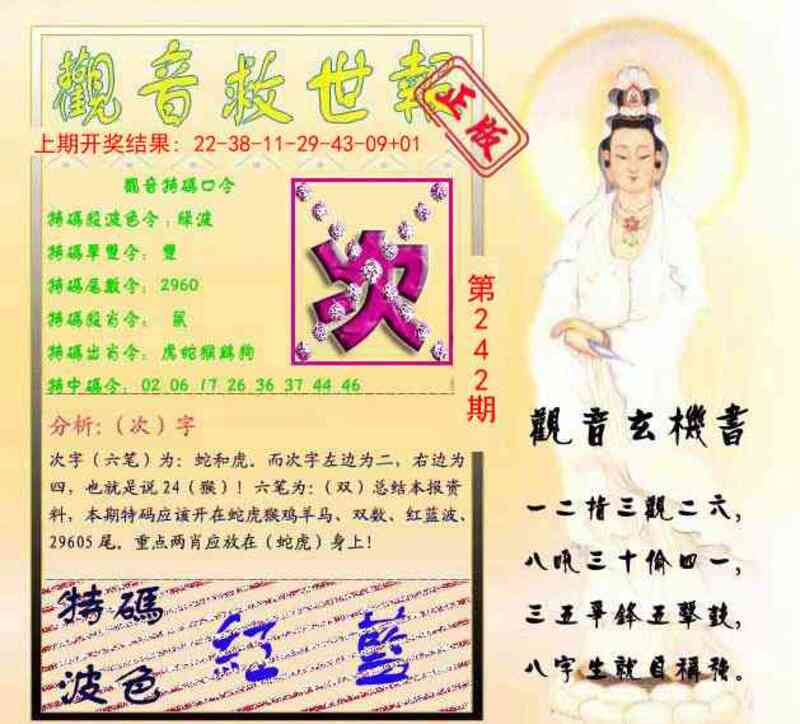 觀音救世報
正版
上期开奖结果：22-38-11-29-43-09+01
觀音特碼口令
特碼殺波色令：綠波
特碼單雙令：雙
特碼尾數令：2960
特碼殺肖令：鼠
特碼出肖令：虎蛇猴鷄狗
特中碼令：02 06 17 26 36 37 44 46
次
第242期
分析：（次）字
次字（六笔）为：蛇和虎。而次字左边为二，右边为
四，也就是说24（猴）！六笔为：（双）总结本报资
料，本期特码应该开在蛇虎猴鸡羊马、双数、红蓝波、
29605尾。重点两肖应放在（蛇虎）身上！
特碼
波色
紅 藍
觀音玄機書
一二指三觀二六，
八吼三十偷四一，
三五爭鋒五擊鼓，
八字生就自稱強。